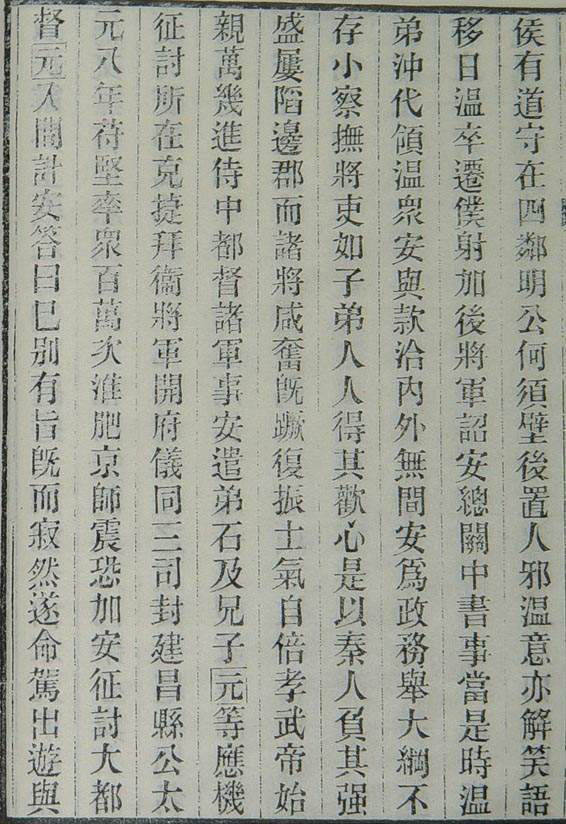 侯有道守在四鄰明公何須壁後置人邪溫意亦解笑語
移日溫卒遷僕射加後將軍詔安總關中書事當是時溫
弟沖代領溫衆安與款洽內外無間安爲政務舉大綱不
存小察撫將吏如子弟人人得其歡心是以秦人負其强
盛屢陷邊郡而諸將咸奮旣蹶復振士氣自倍孝武帝始
親萬幾進侍中都督諸軍事安遣弟石及兄子元等應機
征討所在克捷拜衞將軍開府儀同三司封建昌縣公太
元八年苻堅率衆百萬次淮肥京師震恐加安征討大都
督元入問計安答曰已別有旨旣而寂然遂命駕出遊與